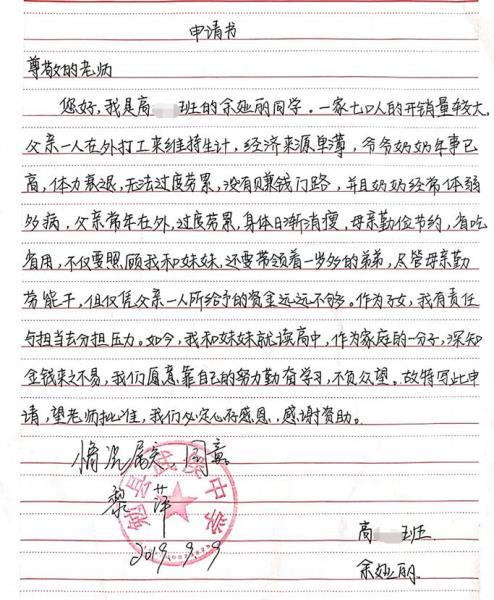 申请书
尊敬的老师
您好，我是高 班的余娅丽同学。一家七口人的开销量较大，
父亲一人在外打工来维持生计，经济来源单薄，爷爷奶奶年事已
高，体力衰退，无法过度劳累，没有赚钱门路，并且奶奶经常体弱
多病，父亲常年在外，过度劳累，身体日渐消瘦，母亲勤俭节约，省吃
省用，不仅要照顾我和妹妹，还要带领着一岁多的弟弟，尽管母亲勤
劳能干，但仅凭父亲一人所给予的资金远远不够。作为子女，我有责任
与担当去分担压力。如今，我和妹妹就读高中，作为家庭的一分子，深知
金钱来之不易，我们愿意靠自己的努力勤奋学习，不负众望。故特写此申
请，望老师批准，我们必定心存感恩，感谢资助。
情况属实，同意
黎萍
2019.9.9
勉县武 中学
高 班
余娅丽